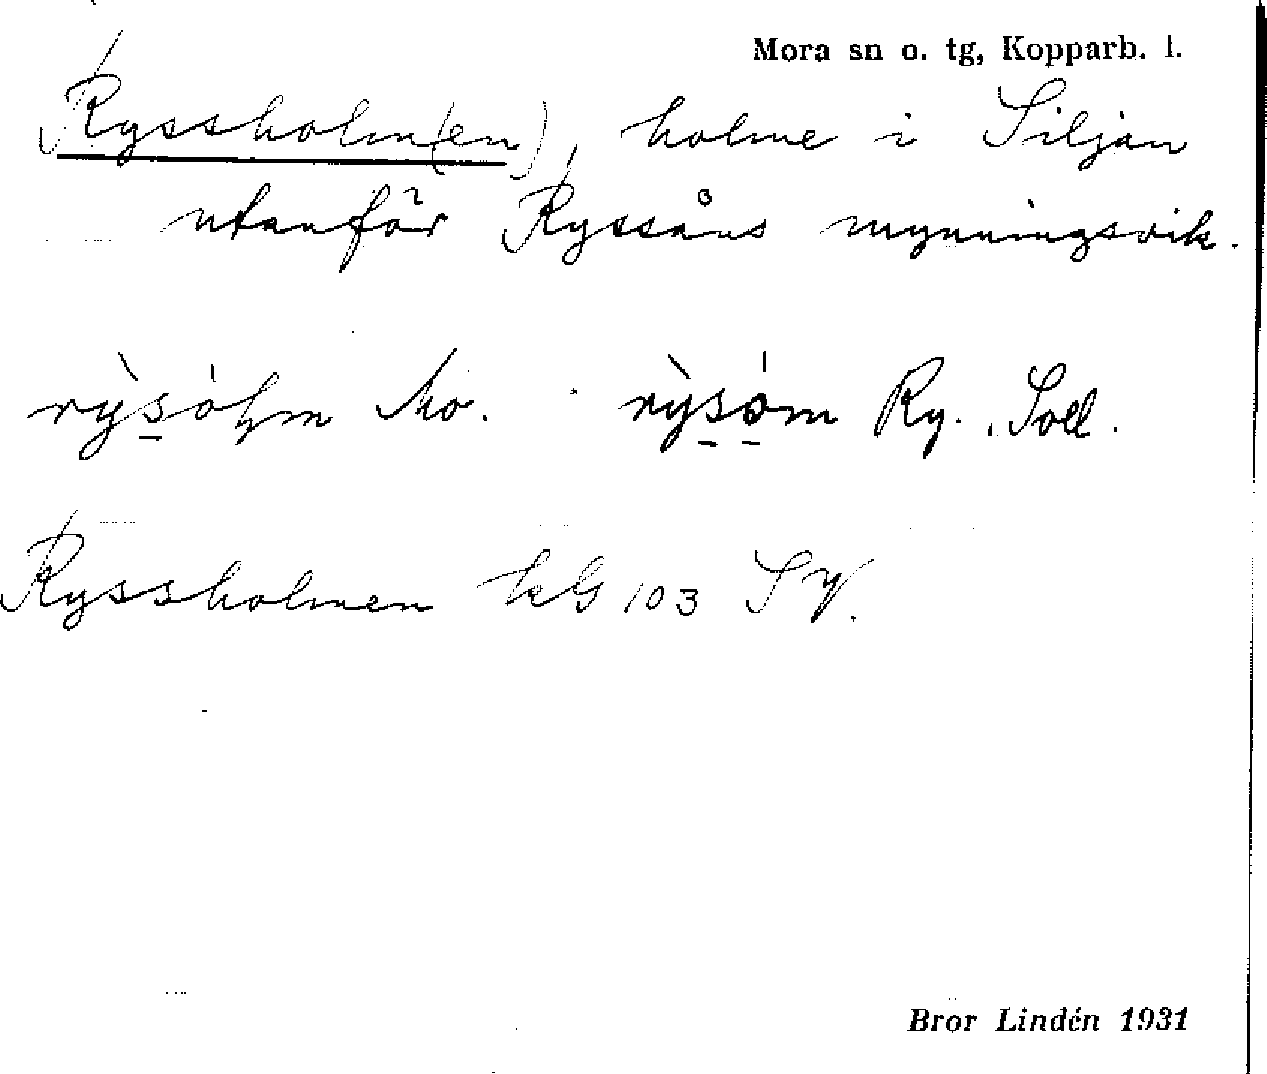 Mora sn o. tg, Kopparb. l.
Ryssholm(en), holme i Siljan
utanför Ryssåns mynningsvik.
rỳsóhm Mo. rỳsóm Ry., Soll.
Ryssholmen kG 103 SV.
Bror Lindén 1931